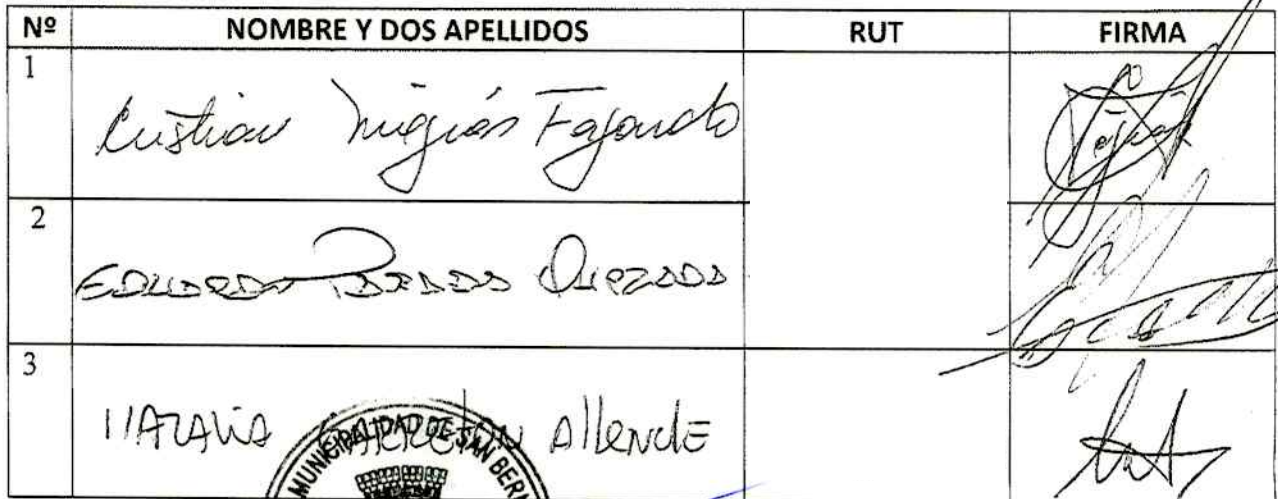 Nº NOMBRE Y DOS APELLIDOS RUT FIRMA
1 Cristian Fajardo
2 EDUARDO QUEZADA
3 NATALIA Allende
MUNICIPALIDAD DE SAN BER